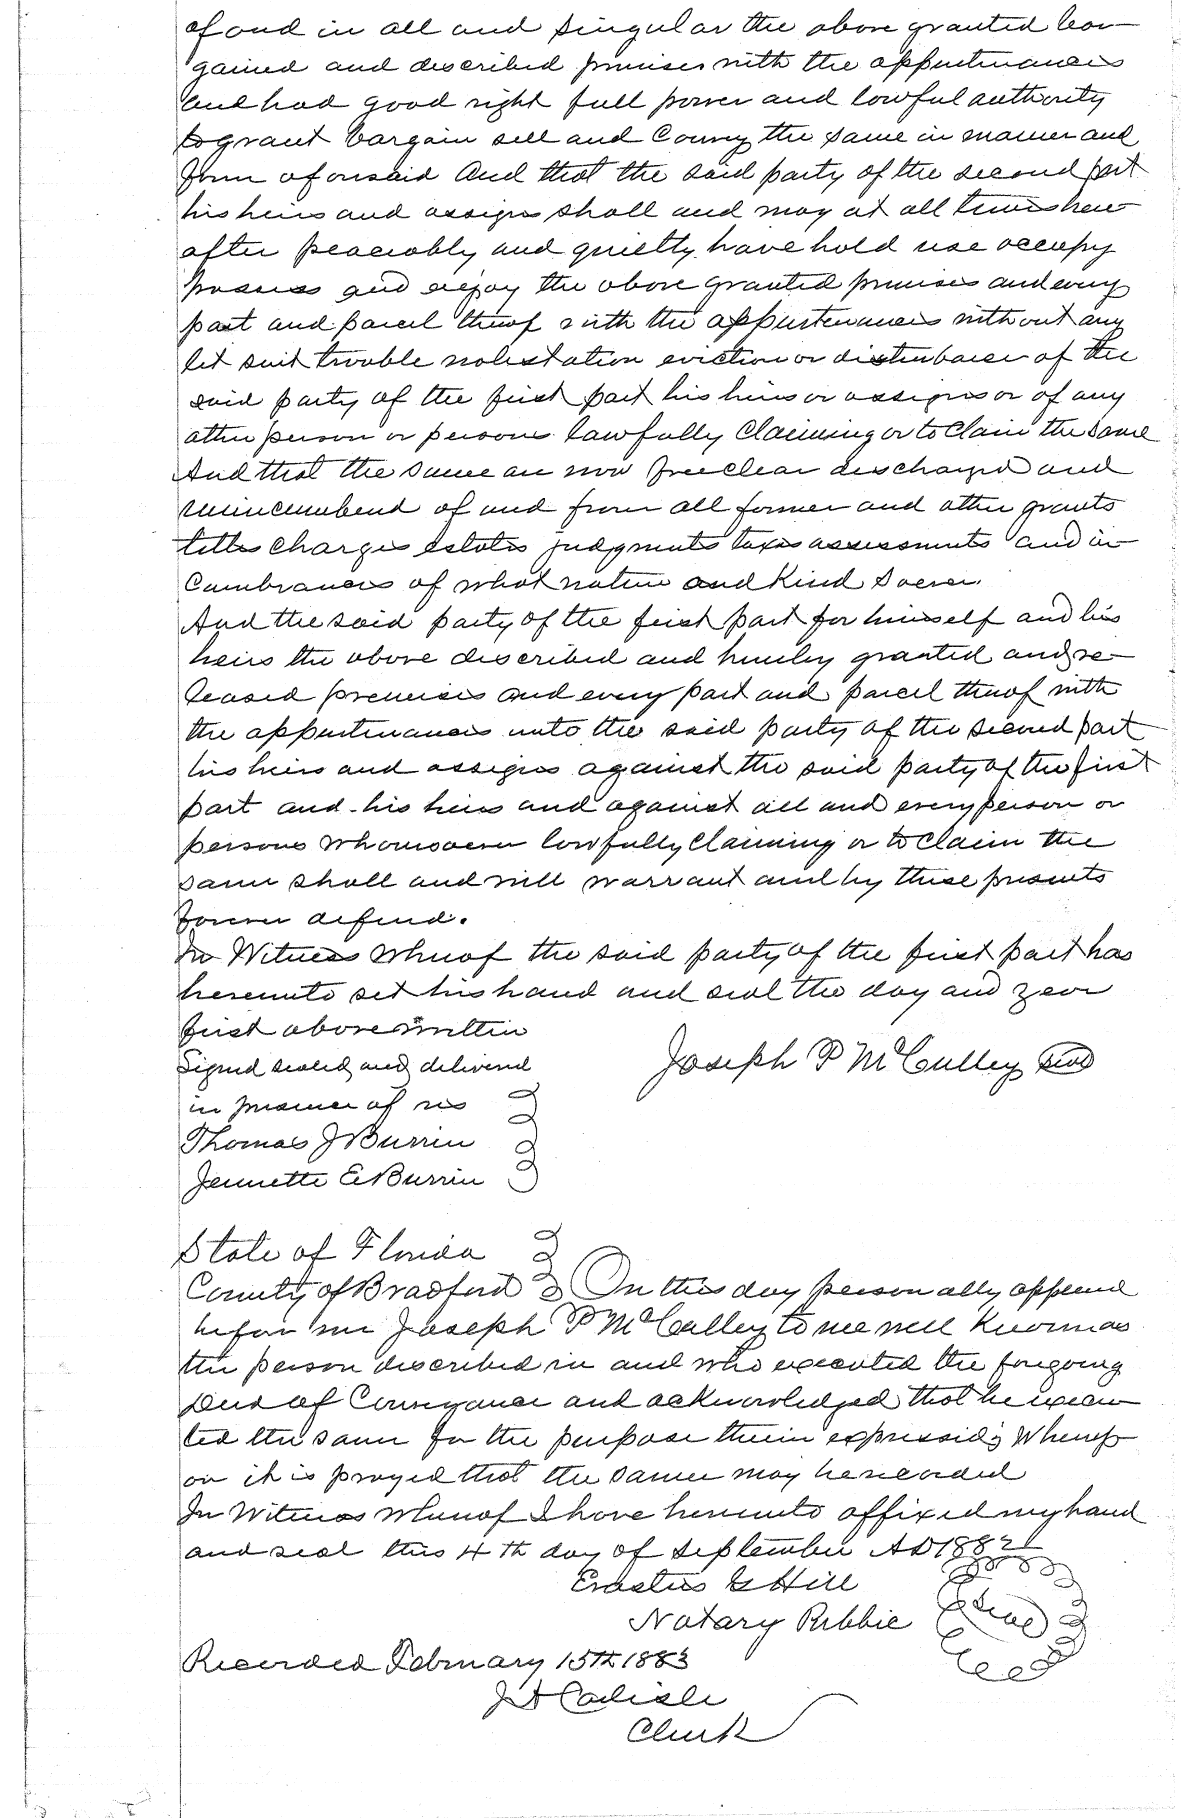 of and in all and singular the above granted bar-
gained and described premises with the appurtenances
and had good right full power and lawful authority
to grant bargain sell and Convey the same in manner and
form aforesaid And that the said party of the second part
his heirs and assigns shall and may at all times here
after peaceably and quietly have hold use occupy
possess and enjoy the above granted premises and every
part and parcel thereof with the appurtenances without any
let suit trouble molestation eviction or disturbance of the
said party of the first part his heirs or assigns or of any
other person or persons lawfully Claiming or to Claim the same
And that the same are now free clear discharged and
unincumbered of and from all former and other grants
titles Charges estates judgments taxes assessments and in
Cumbrances of what nature and Kind Soever.
And the said party of the first part for himself and his
heirs the above described and hereby granted and re-
leased premises and every part and parcel thereof with
the appurtenances unto the said party of the second part
his heirs and assigns against the said party of the first
part and his heirs and against all and every person or
persons whomsoever lawfully Claiming or to Claim the
same shall and will warrant and by these presents
forever defend.
In Witness Whereof the said party of the first part has
hereunto set his hand and seal the day and year
first above written
Signed sealed and delivered
Joseph P McCulley seal
in presence of us
Thomas J Burrin
Jennette E Burrin
State of Florida
County of Bradford On this day personally appeared
before me Joseph P McCulley to me well Known as
the person described in and who executed the foregoing
Deed of Conveyance and acknowledged that he execu
ted the same for the purpose therein expressed; Whereup
on it is prayed that the same may be recorded
In Witness Whereof I have hereunto affixed my hand
and seal this 4th day of September AD 1882
Erastus G Hill
Notary Public seal
Recorded February 15th 1883
J A Carlisle
Clerk